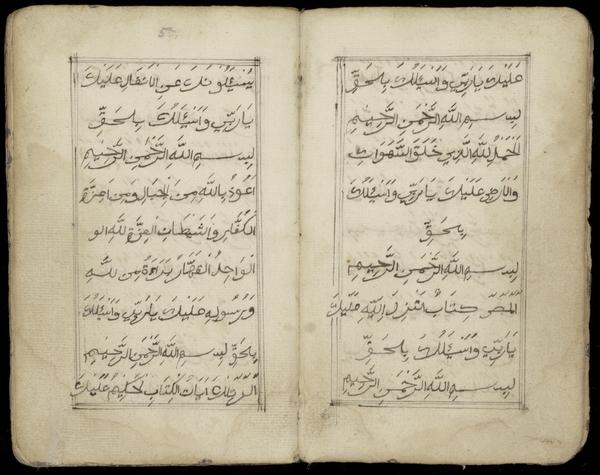 عَلَيْكَ يَارَبِّي وَاَسْئَلُكَ بِلحَقِّ
بِسمِ اللّهِ الرَّحْمَنِ الرَّحِيمِ
اَلحَمْدُ لِلّهِ الَّذِي خَلَقَ السَّمَوَاتِ
وَالاَرْضِ عَلَيْكَ يَارَبِّي وَاَسْئَلُكَ
بِلحَقِّ
بِسمِ اللّهِ الرَّحْمَنِ الرَّحِيمِ
المّصّ كِتَابٌ اُنْزِلَ اِلَيْهِ عَلَيْكَ
يَارَبِّي وَاَسْئَلُكَ بِلحَقِّ
بِسمِ اللّهِ الرَّحْمَنِ الرَّحِيمِ
يَسْئَلُونَكَ عَنِ الاَنْفَالِ عَلَيْكَ
يَارَبِّي وَاَسْئَلُكَ بِلحَقِّ
بِسمِ اللّهِ الرَّحْمَنِ الرَّحِيمِ
اَعُوذُ بِاللّهِ مِنَ وَمِنَ
الكُفَّارِ وَالشَّيْطَانِ العِزَّةِ لِلّهِ الو
الوَاحِدُ القَهَّارُ بَرَاءَةٌ مِن للّهِ
وَرَسُولِهِ عَلَيْكَ يَارَبِّي وَاَسْئَلُكَ
بِلحَقِّ بِسمِ اللّهِ الرَّحْمَنِ الرَّحِيمِ
الّرّ تِلْكَ اَيَاتُ الكِتَابِ لحَكِيمِ عَلَيْكَ